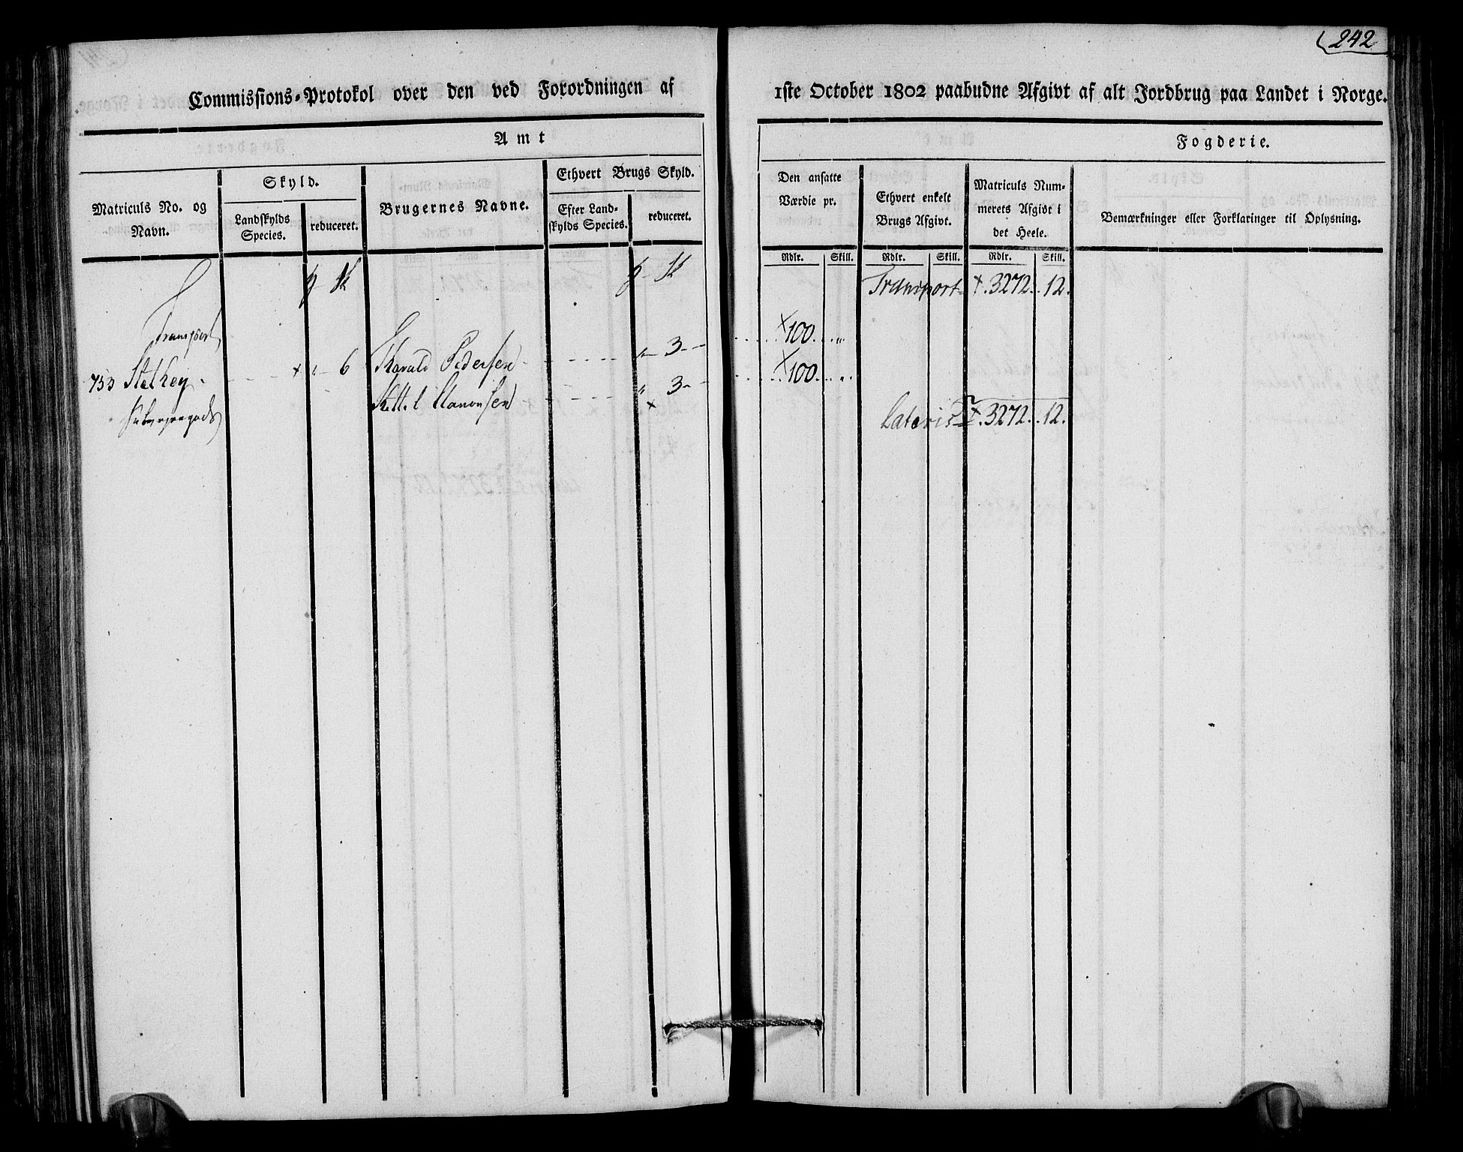 242
Commissions-Protokol over den ved Forordningen af
1ste October 1802 paabudne Afgivt af alt Jordbrug paa Landet i Norge.
Amt
Fogderie.
Matriculs No. og Navn.
Skyld.
Landskylds Species.
reduceret.
Brugernes Navne.
Ethvert Brugs Skyld.
Efter Landskylds Species.
reduceret.
Den ansatte Værdie pr.
Ethvert enkelt Brugs Afgivt.
Matriculs Nummerets Afgivt i det Heele.
Bemærkninger eller Forklaringer til Oplysning.
Rdlr. Skill. Rdlr. Skill. Rdlr. Skill.
Transport 3272. 12.
Transport
Pedersen 3 100
753 6
3 100
Lateris 3272. 12.